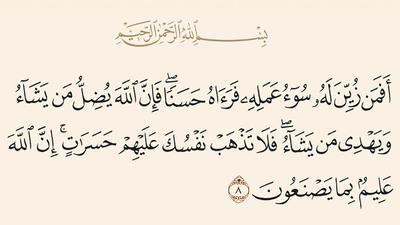 بِسْمِ ٱللَّهِ ٱلرَّحْمَٰنِ ٱلرَّحِيمِ
أَفَمَن زُيِّنَ لَهُۥ سُوٓءُ عَمَلِهِۦ فَرَءَاهُ حَسَنًۭا ۖ فَإِنَّ ٱللَّهَ يُضِلُّ مَن يَشَآءُ
وَيَهْدِى مَن يَشَآءُ ۖ فَلَا تَذْهَبْ نَفْسُكَ عَلَيْهِمْ حَسَرَٰتٍ ۚ إِنَّ ٱللَّهَ
عَلِيمٌۢ بِمَا يَصْنَعُونَ ٨